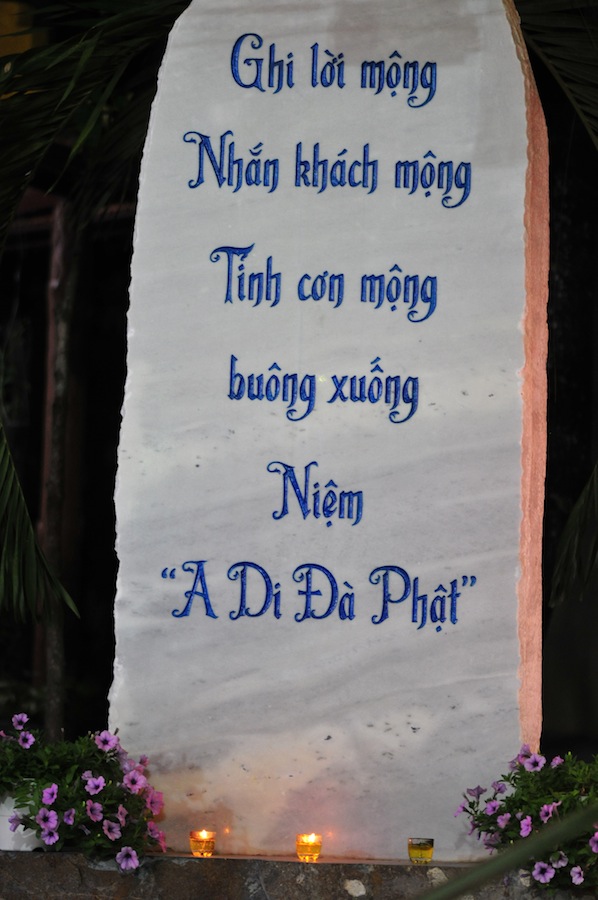 Ghi lời mộng
Nhắn khách mộng
Tỉnh cơn mộng
buông xuống
Niệm
“A Di Đà Phật”